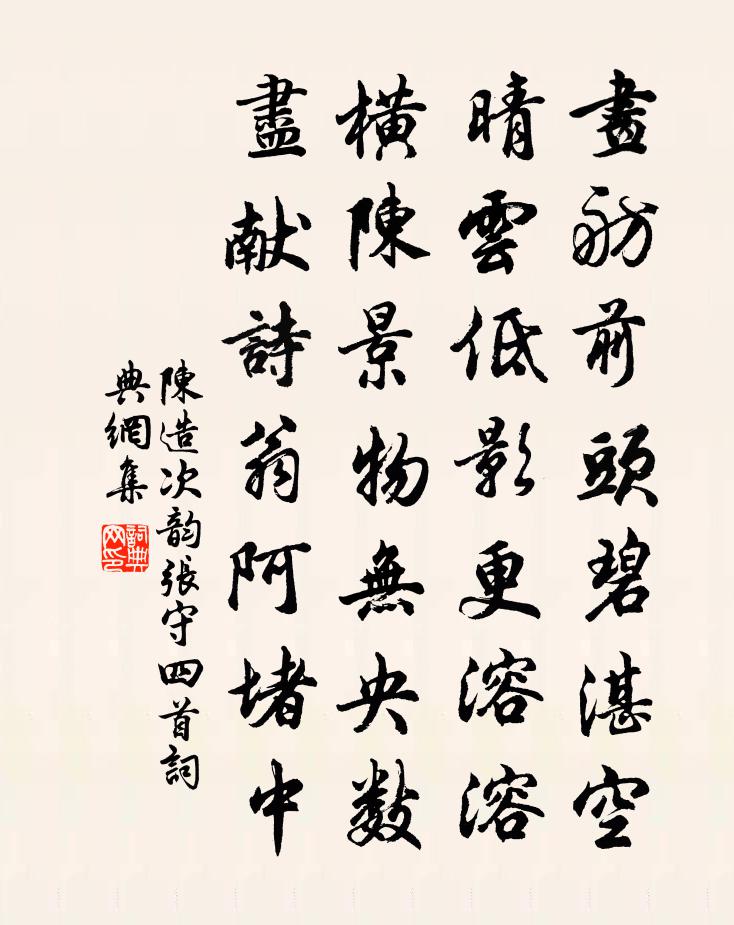 畫舫前頭碧湛空
晴雲低影更溶溶
橫陳景物無央數
盡献詩翁阿堵中
陳造次韵張守四首詞
典網集
詞典網印